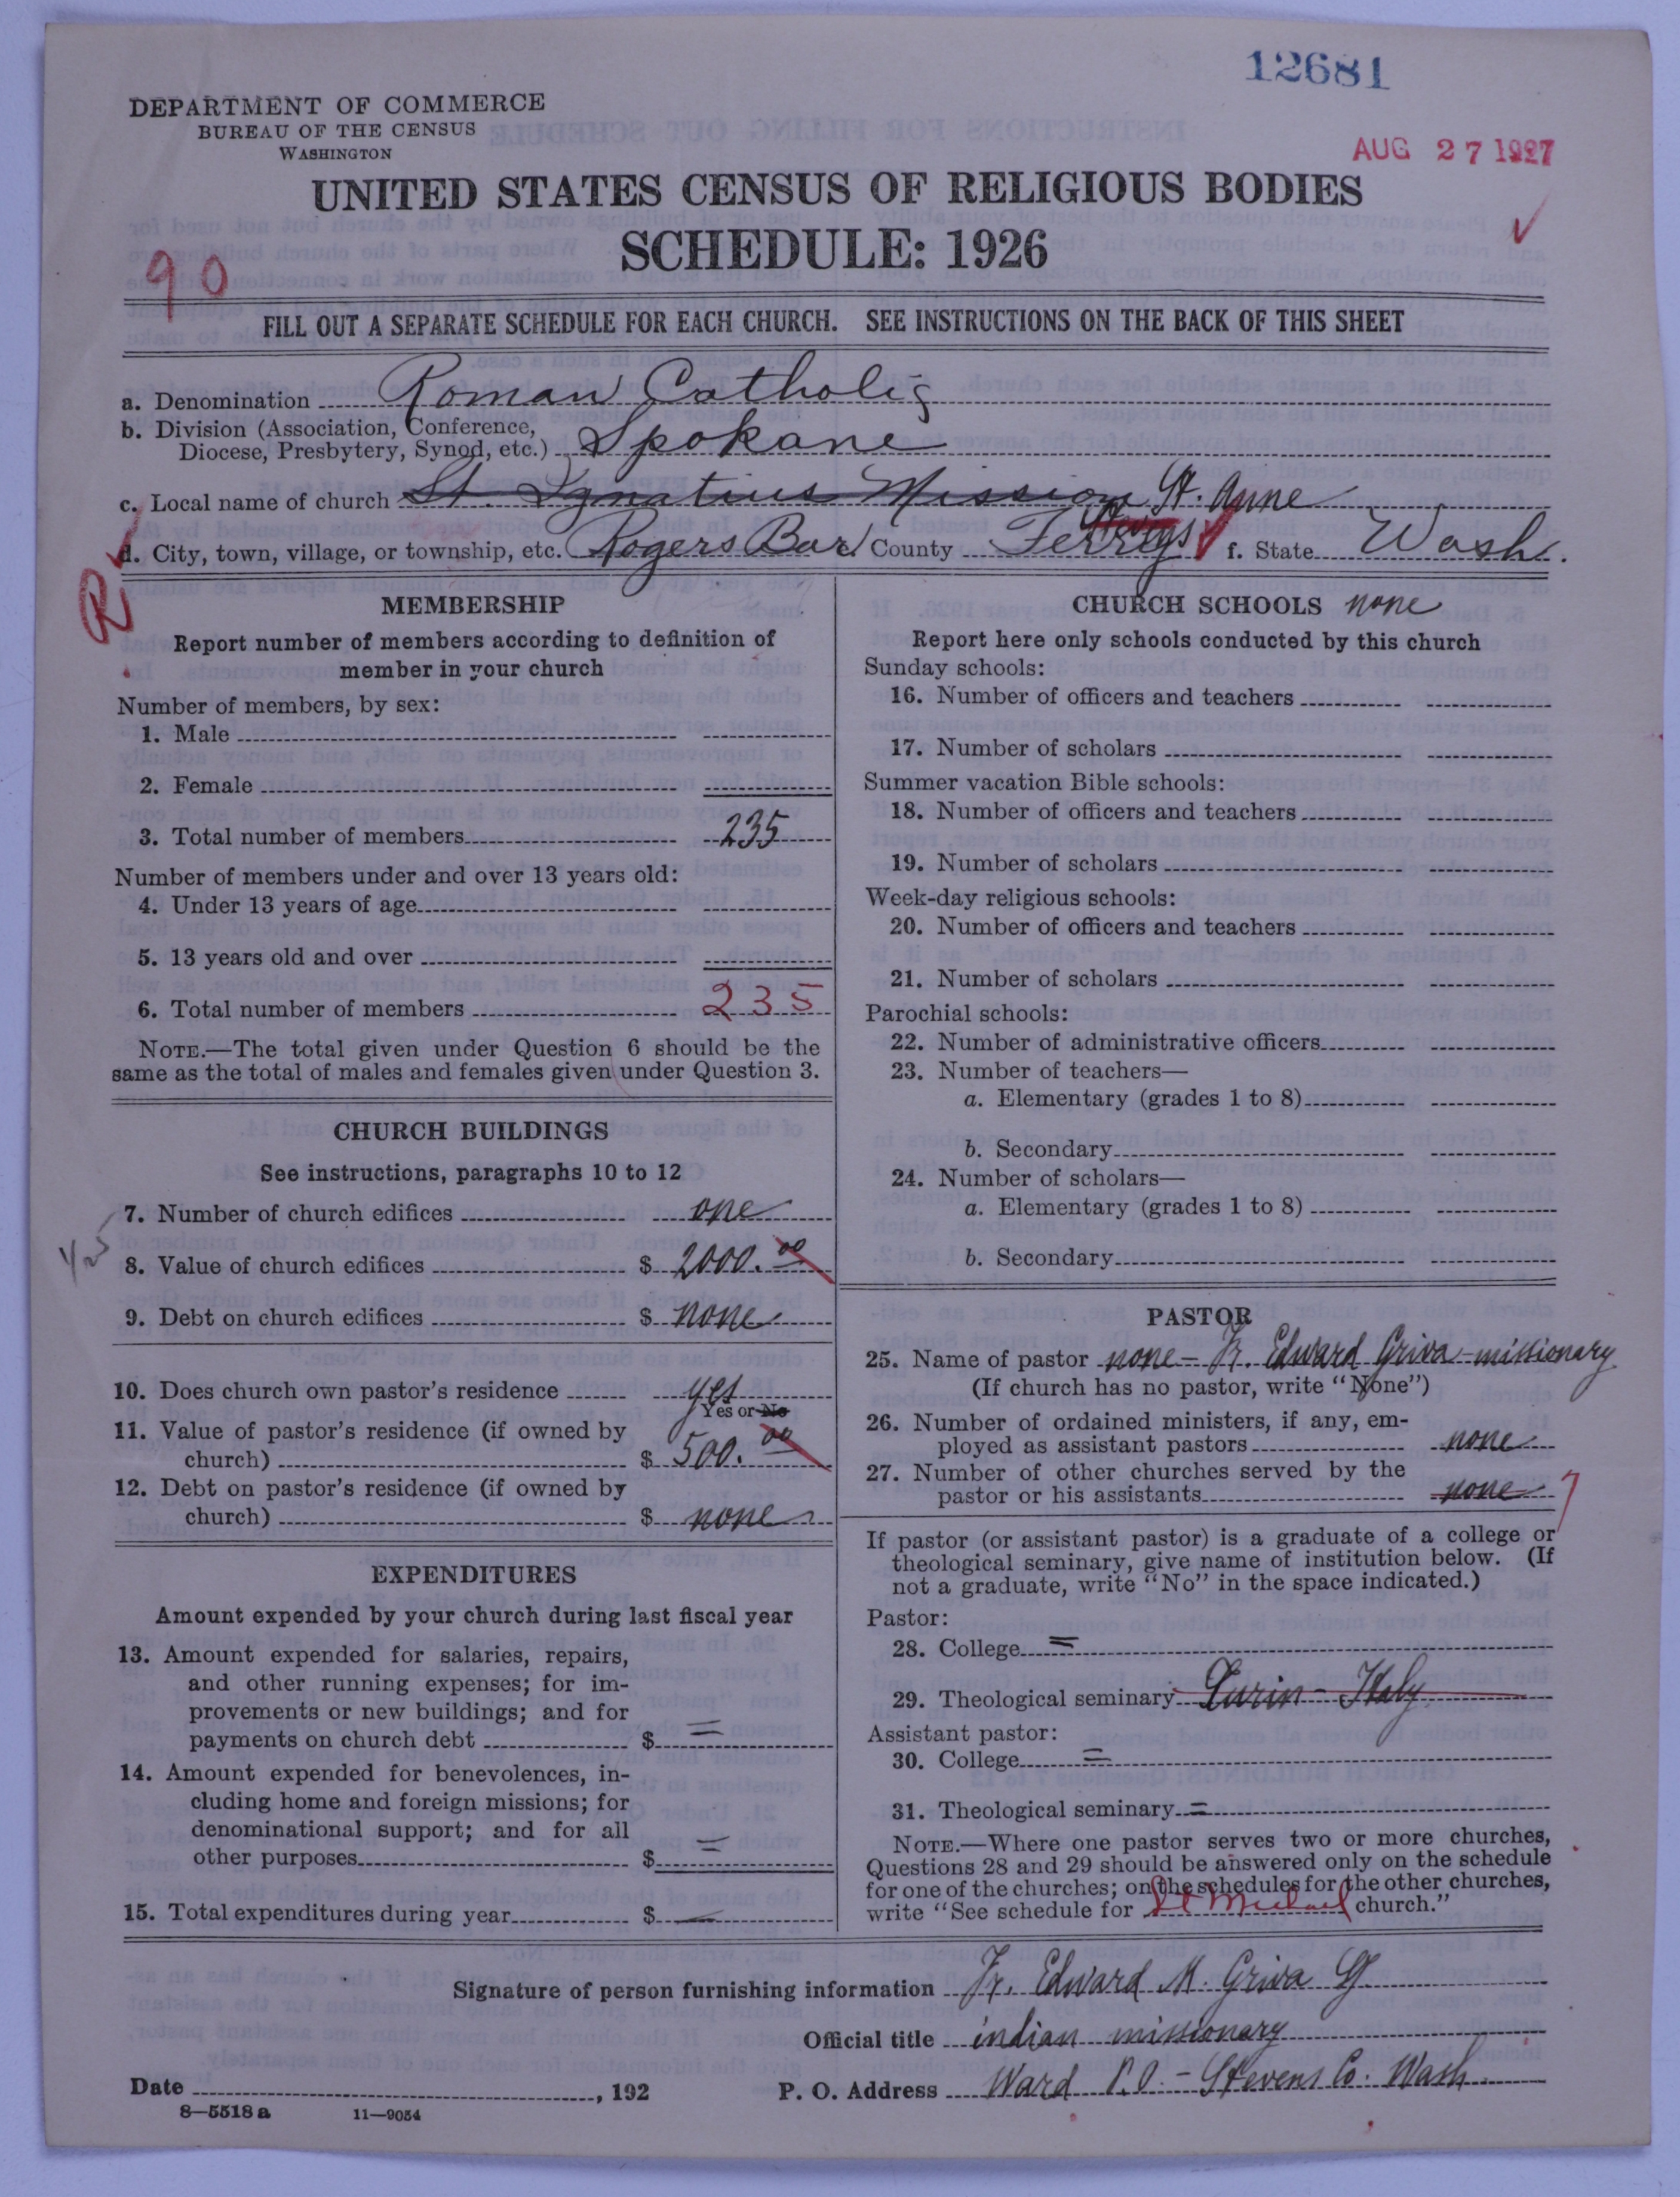 12681
DEPARTMENT OF COMMERCE
BUREAU OF THE CENSUS
WASHINGTON
AUG 27 1927
UNITED STATES CENSUS OF RELIGIOUS BODIES
SCHEDULE: 1926
90
FILL OUT A SEPARATE SCHEDULE FOR EACH CHURCH. SEE INSTRUCTIONS ON THE BACK OF THIS SHEET
a. Denomination Roman Catholic
b. Division (Association, Conference,
Diocese, Presbytery, Synod, etc.) Spokane
c. Local name of church St. Ignatius Mission St. Anne
d. City, town, village, or township, etc. Rogers Bar County Ferry f. State Wash.
R
MEMBERSHIP
Report number of members according to definition of
member in your church
Number of members, by sex:
1. Male
2. Female
3. Total number of members 235
Number of members under and over 13 years old:
4. Under 13 years of age
5. 13 years old and over
6. Total number of members 235
NOTE.—The total given under Question 6 should be the
same as the total of males and females given under Question 3.
CHURCH BUILDINGS
See instructions, paragraphs 10 to 12
7. Number of church edifices one
8. Value of church edifices $ 2000.00
9. Debt on church edifices $ none
10. Does church own pastor's residence yes
Yes or No
11. Value of pastor's residence (if owned by
church) $ 500.00
12. Debt on pastor's residence (if owned by
church) $ none
EXPENDITURES
Amount expended by your church during last fiscal year
13. Amount expended for salaries, repairs,
and other running expenses; for im-
provements or new buildings; and for
payments on church debt $ =
14. Amount expended for benevolences, in-
cluding home and foreign missions; for
denominational support; and for all
other purposes $ =
15. Total expenditures during year $ —
CHURCH SCHOOLS none
Report here only schools conducted by this church
Sunday schools:
16. Number of officers and teachers
17. Number of scholars
Summer vacation Bible schools:
18. Number of officers and teachers
19. Number of scholars
Week-day religious schools:
20. Number of officers and teachers
21. Number of scholars
Parochial schools:
22. Number of administrative officers
23. Number of teachers—
a. Elementary (grades 1 to 8)
b. Secondary
24. Number of scholars—
a. Elementary (grades 1 to 8)
b. Secondary
PASTOR
25. Name of pastor none - Fr. Edward Griva - missionary
(If church has no pastor, write "None")
26. Number of ordained ministers, if any, em-
ployed as assistant pastors none
27. Number of other churches served by the
pastor or his assistants none 7
If pastor (or assistant pastor) is a graduate of a college or
theological seminary, give name of institution below. (If
not a graduate, write "No" in the space indicated.)
Pastor:
28. College =
29. Theological seminary Turin - Italy
Assistant pastor:
30. College =
31. Theological seminary =
NOTE.—Where one pastor serves two or more churches,
Questions 28 and 29 should be answered only on the schedule
for one of the churches; on the schedules for the other churches,
write "See schedule for St Michael church."
Signature of person furnishing information Fr. Edward M. Griva SJ
Official title indian missionary
Date , 192
P. O. Address Ward P.O. - Stevens Co. Wash.
8—5518 a 11—9054